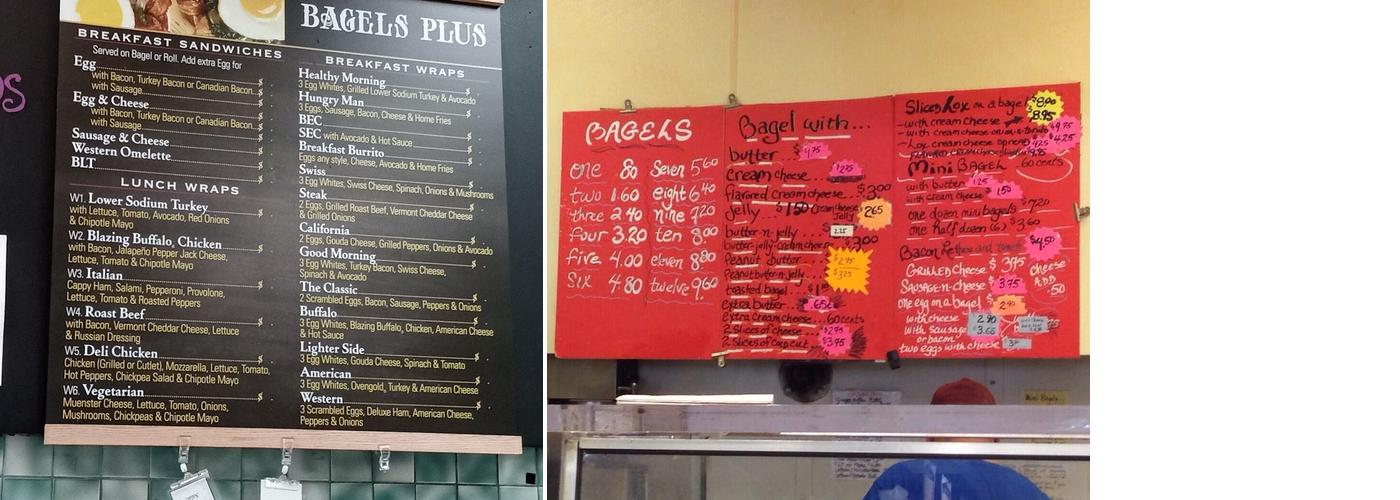 BAGELS PLUS
BREAKFAST SANDWICHES
Served on Bagel or Roll. Add extra Egg for
Egg $
with Bacon, Turkey Bacon or Canadian Bacon $
with Sausage $
Egg & Cheese $
with Bacon, Turkey Bacon or Canadian Bacon $
with Sausage $
Sausage & Cheese $
Western Omelette $
BLT $
LUNCH WRAPS
W1. Lower Sodium Turkey $
with Lettuce, Tomato, Avocado, Red Onions
& Chipotle Mayo
W2. Blazing Buffalo, Chicken $
with Bacon, Jalapeño Pepper Jack Cheese,
Lettuce, Tomato & Chipotle Mayo
W3. Italian $
Cappy Ham, Salami, Pepperoni, Provolone,
Lettuce, Tomato & Roasted Peppers
W4. Roast Beef $
with Bacon, Vermont Cheddar Cheese, Lettuce
& Russian Dressing
W5. Deli Chicken $
Chicken (Grilled or Cutlet), Mozzarella, Lettuce, Tomato,
Hot Peppers, Chickpea Salad & Chipotle Mayo
W6. Vegetarian $
Muenster Cheese, Lettuce, Tomato, Onions,
Mushrooms, Chickpeas & Chipotle Mayo
BREAKFAST WRAPS
Healthy Morning $
3 Egg Whites, Grilled Lower Sodium Turkey & Avocado
Hungry Man $
3 Eggs, Sausage, Bacon, Cheese & Home Fries
BEC $
SEC with Avocado & Hot Sauce $
Breakfast Burrito $
Eggs any style, Cheese, Avocado & Home Fries
Swiss $
3 Egg Whites, Swiss Cheese, Spinach, Onions & Mushrooms
Steak $
2 Eggs, Grilled Roast Beef, Vermont Cheddar Cheese
& Grilled Onions
California $
2 Eggs, Gouda Cheese, Grilled Peppers, Onions & Avocado
Good Morning $
3 Egg Whites, Turkey Bacon, Swiss Cheese,
Spinach & Avocado
The Classic $
2 Scrambled Eggs, Bacon, Sausage, Peppers & Onions
Buffalo $
3 Egg Whites, Blazing Buffalo, Chicken, American Cheese
& Hot Sauce
Lighter Side $
3 Egg Whites, Gouda Cheese, Spinach & Tomato
American $
3 Egg Whites, Ovengold, Turkey & American Cheese
Western $
3 Scrambled Eggs, Deluxe Ham, American Cheese,
Peppers & Onions
BAGELS
one 80 Seven 5.60
two 1.60 eight 6.40
three 2.40 nine 7.20
four 3.20 ten 8.00
five 4.00 eleven 8.80
six 4.80 twelve 9.60
Bagel with...
butter
cream cheese... $2.75
flavored cream cheese... $3.00
Jelly... $1.50 Cream cheese Jelly 2.65
butter-n-jelly 2.25
butter-jelly-cream cheese $3.00
Peanut butter... $2.95
Peanut butter-n-jelly $3.25
toasted bagel
extra butter... .65¢
extra cream cheese... 60 cents
2 Slices of cheese... $2.75
2 Slices of cold cut.. $3.95
Sliced Lox on a bagel $8.00
-with cream cheese 8.95
-with cream cheese onion-n-tomato
-Lox cream cheese spread
Mini BAGEL 60 cents
with butter 1.25
with cream cheese 1.50
one dozen mini bagels $7.20
one half dozen (6) $3.60
Bacon Lettuce and Tomato $4.50
GRILLED Cheese $3.95
SAUSAGE-n-cheese $3.75
cheese ADD .50
one egg on a bagel $
with cheese
with Sausage or bacon
two eggs with cheese
Mini Bagels...